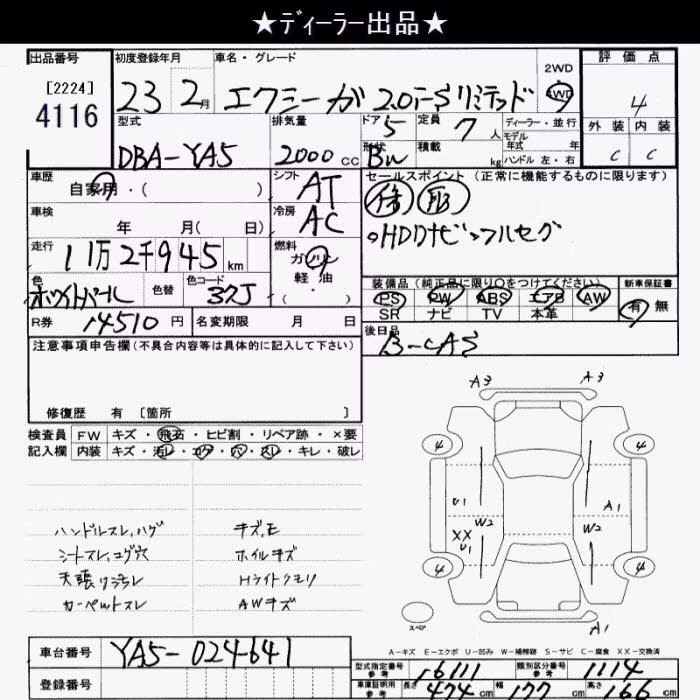 ★ディーラー出品★
出品番号
[2224]
4116
初度登録年月
23 2月
車名・グレード
エクシーガ 2.0i-Sリミテッド
2WD
4WD
評価点
4
外装 内装
C C
型式
DBA-YA5
排気量
2000 CC
ドア 5
定員 7 人
形状 BW
積載 kg
ディーラー・並行
モデル年式 年
ハンドル 左・右
車歴
自家用・( )
シフト
AT
セールスポイント(正常に機能するものに限ります)
HDDナビ フルセグ
車検
年 月( 日)
冷房
AC
走行
11万2千945 km
燃料
ガソリン
軽油
( )
色
ホワイトパール
色替
色コード
37J
装備品(純正品に限り〇をつけてください)
PS PW ABS エアB AW
SR ナビ TV 本革
新車保証書
有 無
R券
14510 円
名変期限 月 日
後日品
B-CAS
注意事項申告欄(不具合内容等は具体的に記入して下さい)
修復歴 有 〔箇所 〕
検査員記入欄
FW キズ・飛石・ヒビ割・リペア跡・×要
内装 キズ・汚レ・コゲ・穴・スレ・キレ・破レ
ハンドルスレ、ハゲ
シートスレ、コゲ穴
カーペットスレ
ホイルキズ
Hライトクモリ
AWキズ
A3 A3
4 4
U1 A1
W2 W2
XX
U1
4 4
A1
スペア
A-キズ E-エクボ U-凹み W-補修跡 S-サビ C-腐食 XX-交換済
車台番号
YA5-024641
登録番号
型式指定番号 参考 16111
類別区分番号 参考 1114
車庫証明用 参考 長さ 474 cm 幅 177 cm 高さ 166 cm